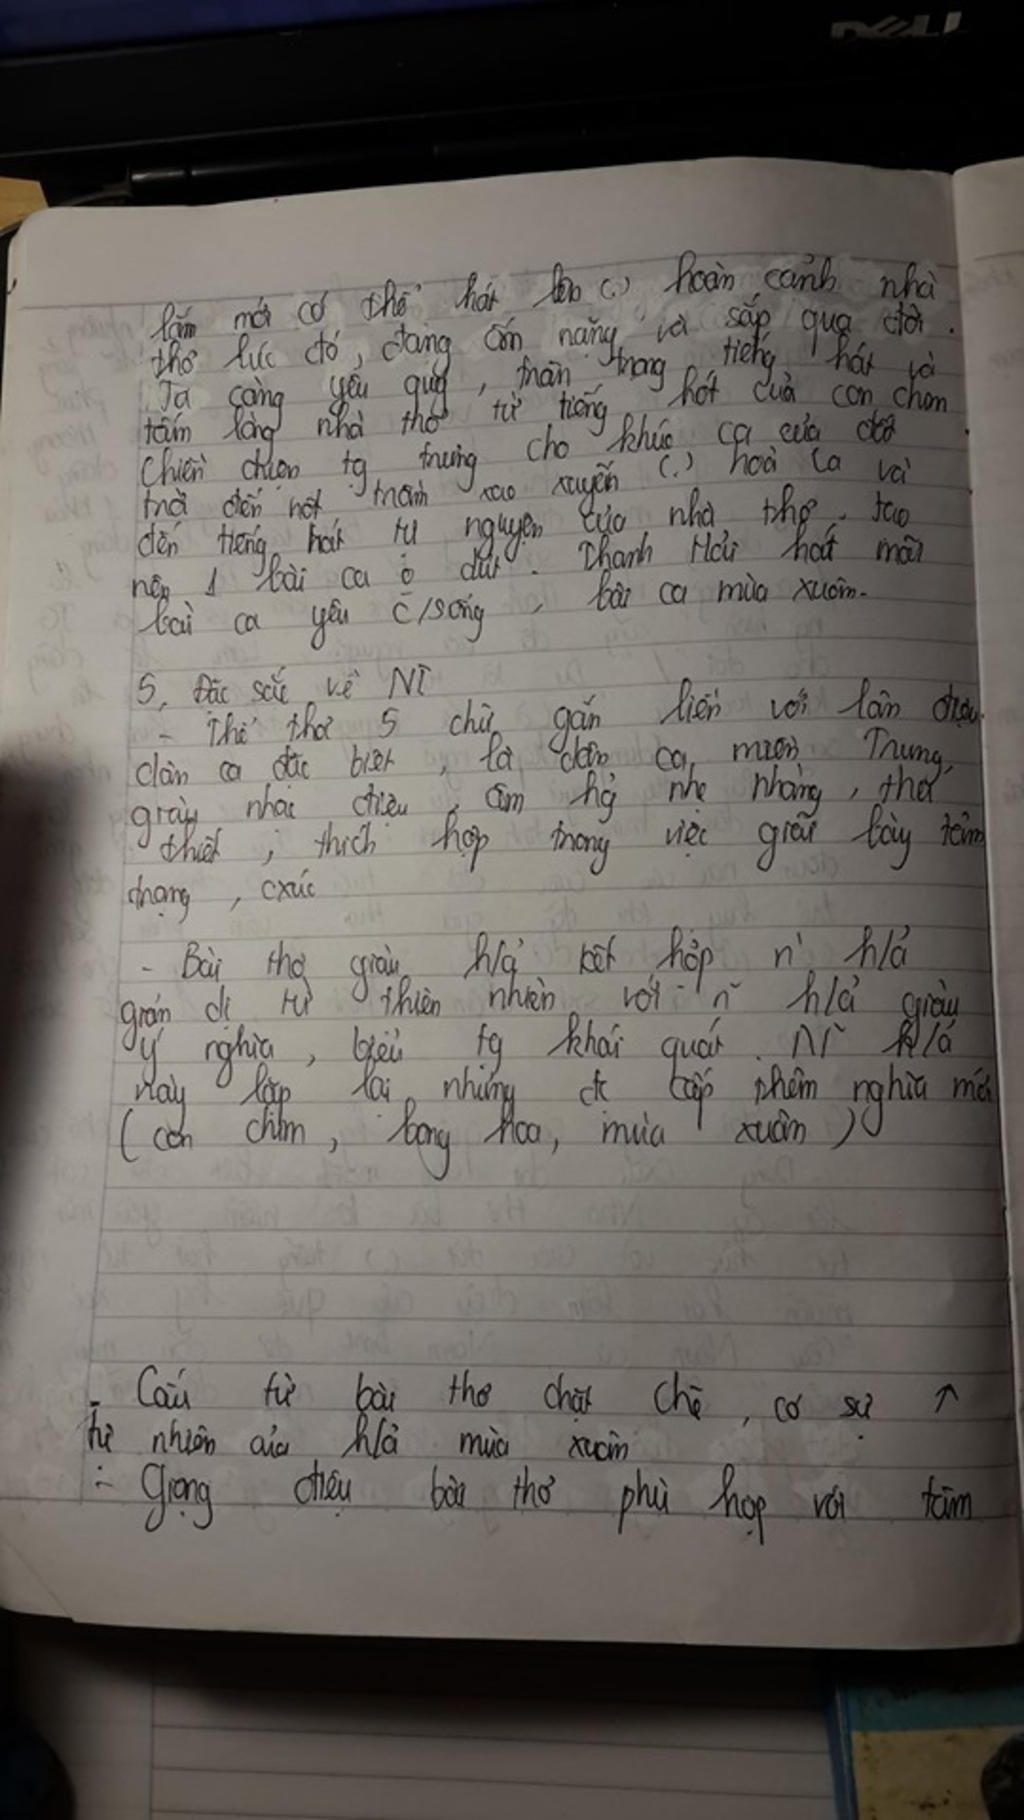 DELL
lắm mới có thể hát lên (.) hoàn cảnh nhà
thơ lúc đó, đang ốm nặng và sắp qua đời.
Ta càng yêu quý, trân trọng tiếng hát và
tấm lòng nhà thơ từ tiếng hót của con chim
chiền chiện tg trưng cho khúc ca của đất
trời đến nốt trầm xao xuyến (.) hoà ca và
đến tiếng hát tự nguyện của nhà thơ. tạo
nên 1 bài ca ở đời. Thanh Hải hát mãi
bài ca yêu c/sống, bài ca mùa xuân.
5, Đặc sắc về NT
- Thể thơ 5 chữ gắn liền với làn điệu
dân ca đặc biệt, là dân ca miền Trung,
giàu nhạc điệu, âm hg nhẹ nhàng, tha
thiết, thích hợp trong việc giãi bày tâm
trạng, cxúc
- Bài thơ giàu h/ả kết hợp n~ h/ả
giản dị từ thiên nhiên với n~ h/ả giàu
ý nghĩa, biểu tg khái quát. N~ h/ả
này lặp lại nhưng đc cấp thêm nghĩa mới
(con chim, bông hoa, mùa xuân)
- Cấu tứ bài thơ chặt chẽ, có sự ↑
tự nhiên của h/ả mùa xuân
- Giọng điệu bài thơ phù hợp với tâm